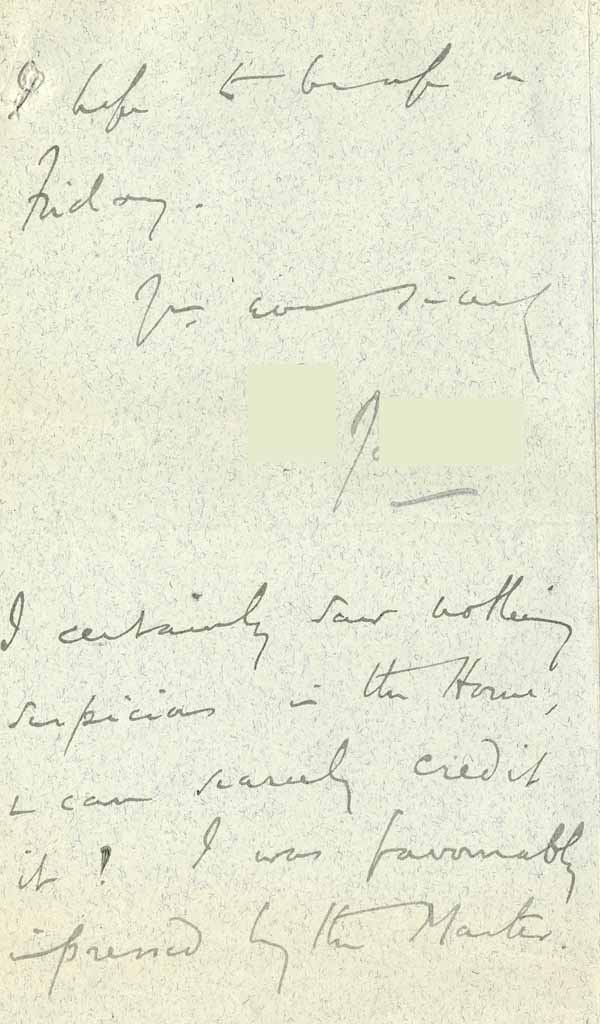 I hope to be up on
Friday.
Yrs. ever sincerely
I certainly saw nothing
suspicious in the Home,
& can scarcely credit
it! I was favourably
impressed by the Master.